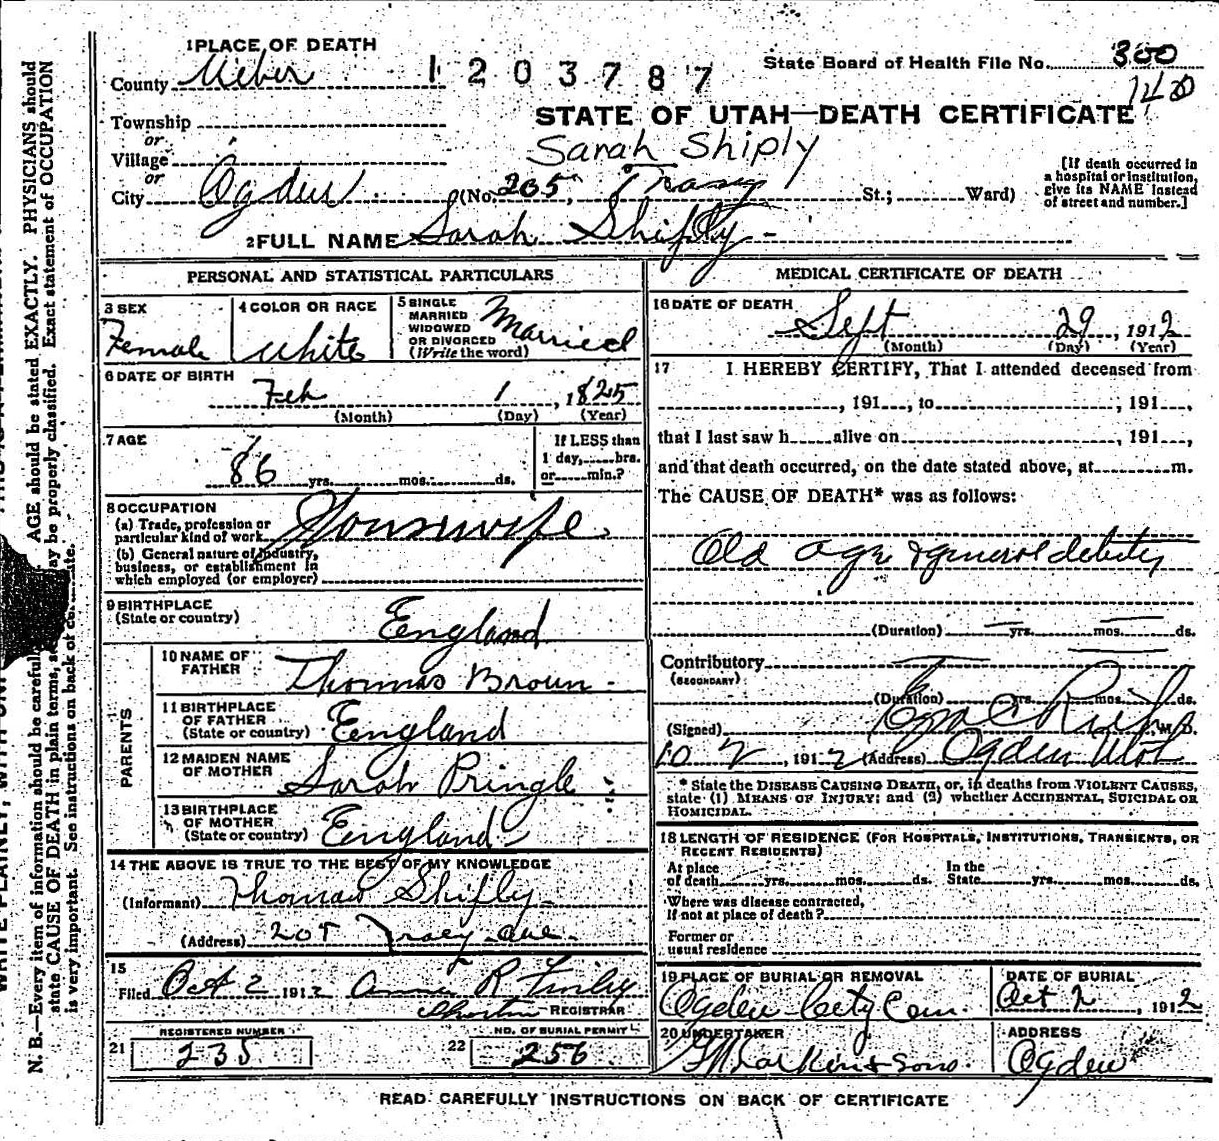 1 PLACE OF DEATH
County Weber
1203787
State Board of Health File No. 300
1420
STATE OF UTAH—DEATH CERTIFICATE
Township
or
Village
or
City Ogden (No. 205, Tracy St.; Ward)
Sarah Shiply
[If death occurred in
a hospital or institution,
give its NAME instead
of street and number.]
2 FULL NAME Sarah Shiply
PERSONAL AND STATISTICAL PARTICULARS
3 SEX
Female
4 COLOR OR RACE
White
5 SINGLE
MARRIED
WIDOWED
OR DIVORCED
(Write the word)
Married
6 DATE OF BIRTH
Feb 1, 1825
(Month) (Day) (Year)
7 AGE
86 yrs. mos. ds.
If LESS than
1 day, hrs.
or min.?
8 OCCUPATION
(a) Trade, profession or
particular kind of work
Housewife
(b) General nature of industry,
business, or establishment in
which employed (or employer)
9 BIRTHPLACE
(State or country)
England
PARENTS
10 NAME OF
FATHER
Thomas Brown
11 BIRTHPLACE
OF FATHER
(State or country) England
12 MAIDEN NAME
OF MOTHER
Sarah Pringle
13 BIRTHPLACE
OF MOTHER
(State or country) England
14 THE ABOVE IS TRUE TO THE BEST OF MY KNOWLEDGE
(Informant) Thomas Shiply
(Address) 205 Tracy ave
15
Filed Oct 2 1912 Annie R Finley
REGISTRAR
REGISTERED NUMBER
21 235
NO. OF BURIAL PERMIT
22 256
MEDICAL CERTIFICATE OF DEATH
16 DATE OF DEATH
Sept 29, 1912
(Month) (Day) (Year)
17 I HEREBY CERTIFY, That I attended deceased from
, 191 , to , 191 ,
that I last saw h alive on , 191 ,
and that death occurred, on the date stated above, at m.
The CAUSE OF DEATH* was as follows:
Old age & general debility
(Duration) yrs. mos. ds.
Contributory
(SECONDARY)
(Duration) yrs. mos. ds.
(Signed) , M. D.
10 2, 1912 (Address) Ogden Utah
* State the DISEASE CAUSING DEATH, or, in deaths from VIOLENT CAUSES,
state (1) MEANS OF INJURY; and (2) whether ACCIDENTAL, SUICIDAL OR
HOMICIDAL.
18 LENGTH OF RESIDENCE (FOR HOSPITALS, INSTITUTIONS, TRANSIENTS, OR
RECENT RESIDENTS)
At place
of death yrs. mos. ds.
In the
State yrs. mos. ds.
Where was disease contracted,
if not at place of death?
Former or
usual residence
19 PLACE OF BURIAL OR REMOVAL
Ogden City Cem.
DATE OF BURIAL
Oct 2, 1912
20 UNDERTAKER
Larkin & Sons.
ADDRESS
Ogden
READ CAREFULLY INSTRUCTIONS ON BACK OF CERTIFICATE
N. B.—Every item of information should be carefully AGE should be stated EXACTLY. PHYSICIANS should
state CAUSE OF DEATH in plain terms, may be properly classified. Exact statement of OCCUPATION
is very important. See instructions on back of certificate.